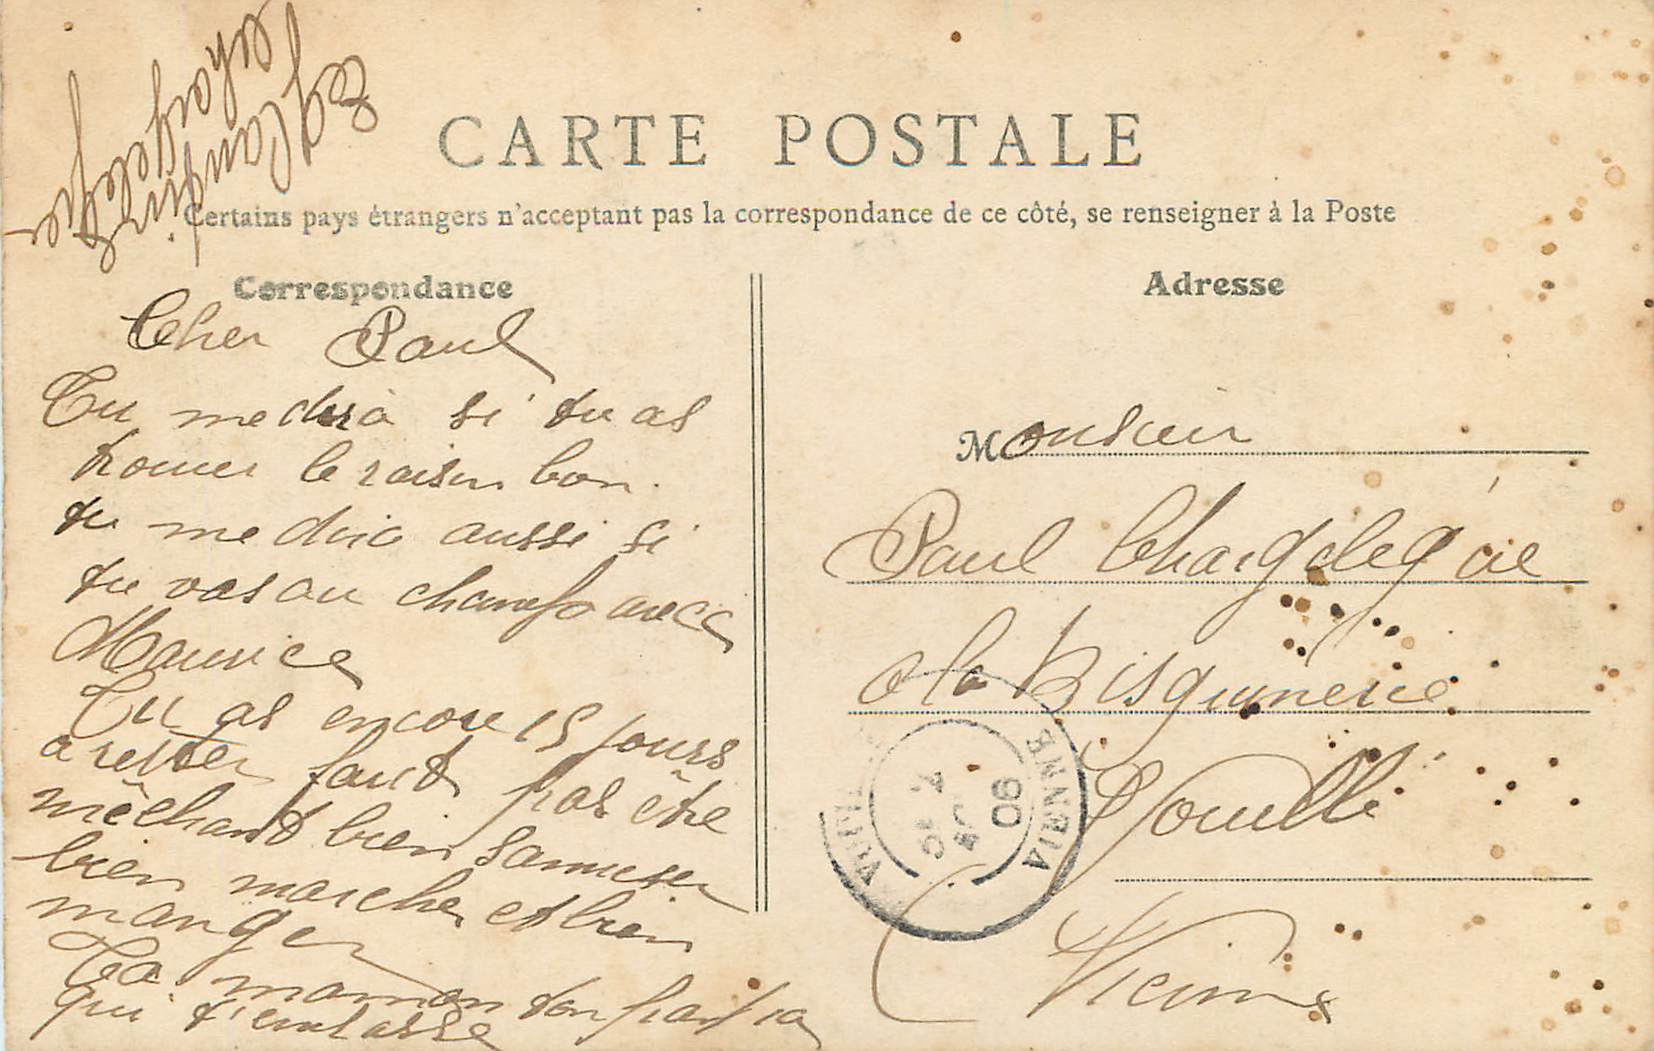 CARTE POSTALE
Certains pays étrangers n'acceptant pas la correspondance de ce côté, se renseigner à la Poste
Correspondance
Adresse
Cher Paul
Tu me dira si tu as
trouver le raisin bon.
tu me dira aussi si
tu vas au champ avec
Maurice
Tu as encore 15 jours
a rester faut pas être
mêchant bien samuser
bien marcher et bien
manger
Ta maman ton papa
qui t'embrasse
Monsieur
Paul
a la
Vouillé
Vienne
VIENNE
06